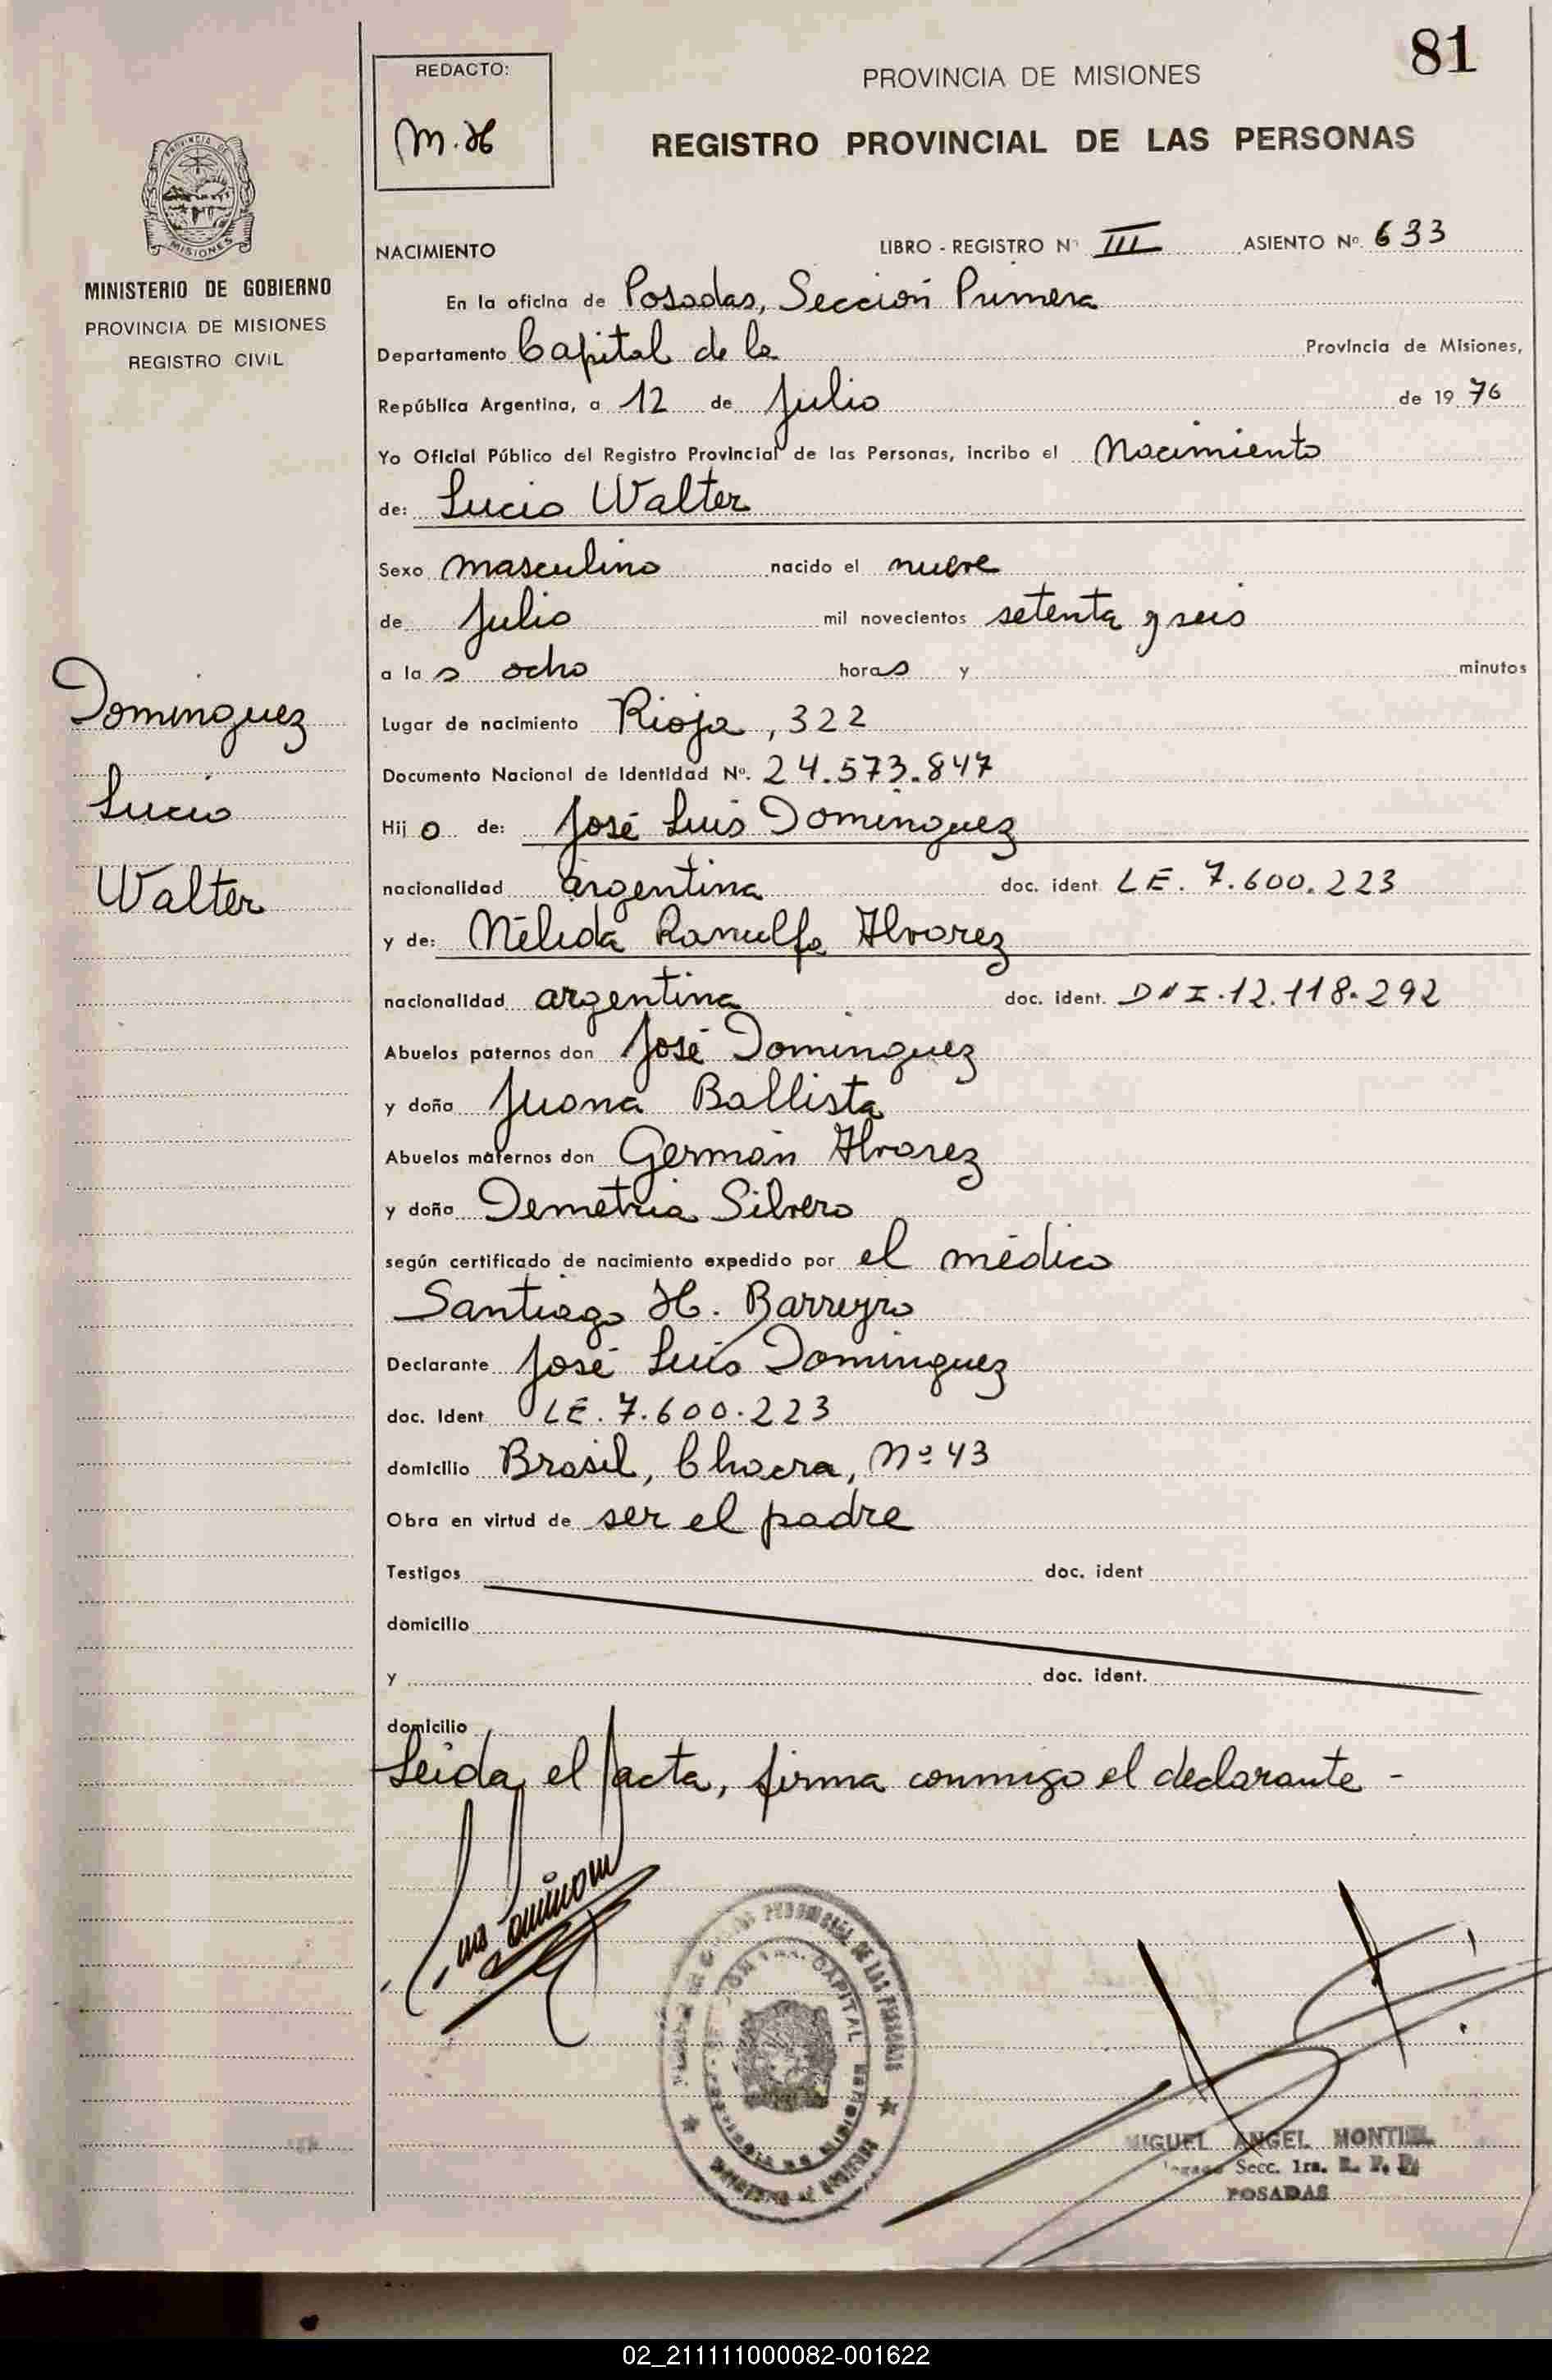 81
REDACTO:
M.H
PROVINCIA DE MISIONES
REGISTRO PROVINCIAL DE LAS PERSONAS
PROVINCIA DE
MISIONES
MINISTERIO DE GOBIERNO
PROVINCIA DE MISIONES
REGISTRO CIVIL
NACIMIENTO LIBRO - REGISTRO Nº III ASIENTO Nº 633
En la oficina de Posadas, Sección Primera
Departamento Capital de la Provincia de Misiones,
República Argentina, a 12 de Julio de 1976
Yo Oficial Público del Registro Provincial de las Personas, incribo el Nacimiento
de: Lucio Walter
Sexo masculino nacido el nueve
de Julio mil novecientos setenta y seis
a las ocho horas y minutos
Lugar de nacimiento Rioja, 322
Documento Nacional de Identidad Nº. 24.573.847
Hijo de: José Luis Dominguez
nacionalidad argentina doc. ident LE. 7.600.223
y de: Nélida Ranulfa Alvarez
nacionalidad argentina doc. ident. DNI.12.118.292
Abuelos paternos don José Dominguez
y doña Juana Ballista
Abuelos maternos don Germán Alvarez
y doña Demetria Silvero
según certificado de nacimiento expedido por el médico
Santiago H. Barreyro
Declarante José Luis Dominguez
doc. Ident LE. 7.600.223
domicilio Brasil, Chacra, Nº 43
Obra en virtud de ser el padre
Testigos doc. ident
domicilio
y doc. ident.
domicilio
Leida el acta, firma conmigo el declarante -
Dominguez
Lucio
Walter
CAPITAL
MIGUEL ANGEL MONTIEL
Secc. 1ra. R. P. P.
POSADAS
02_211111000082-001622